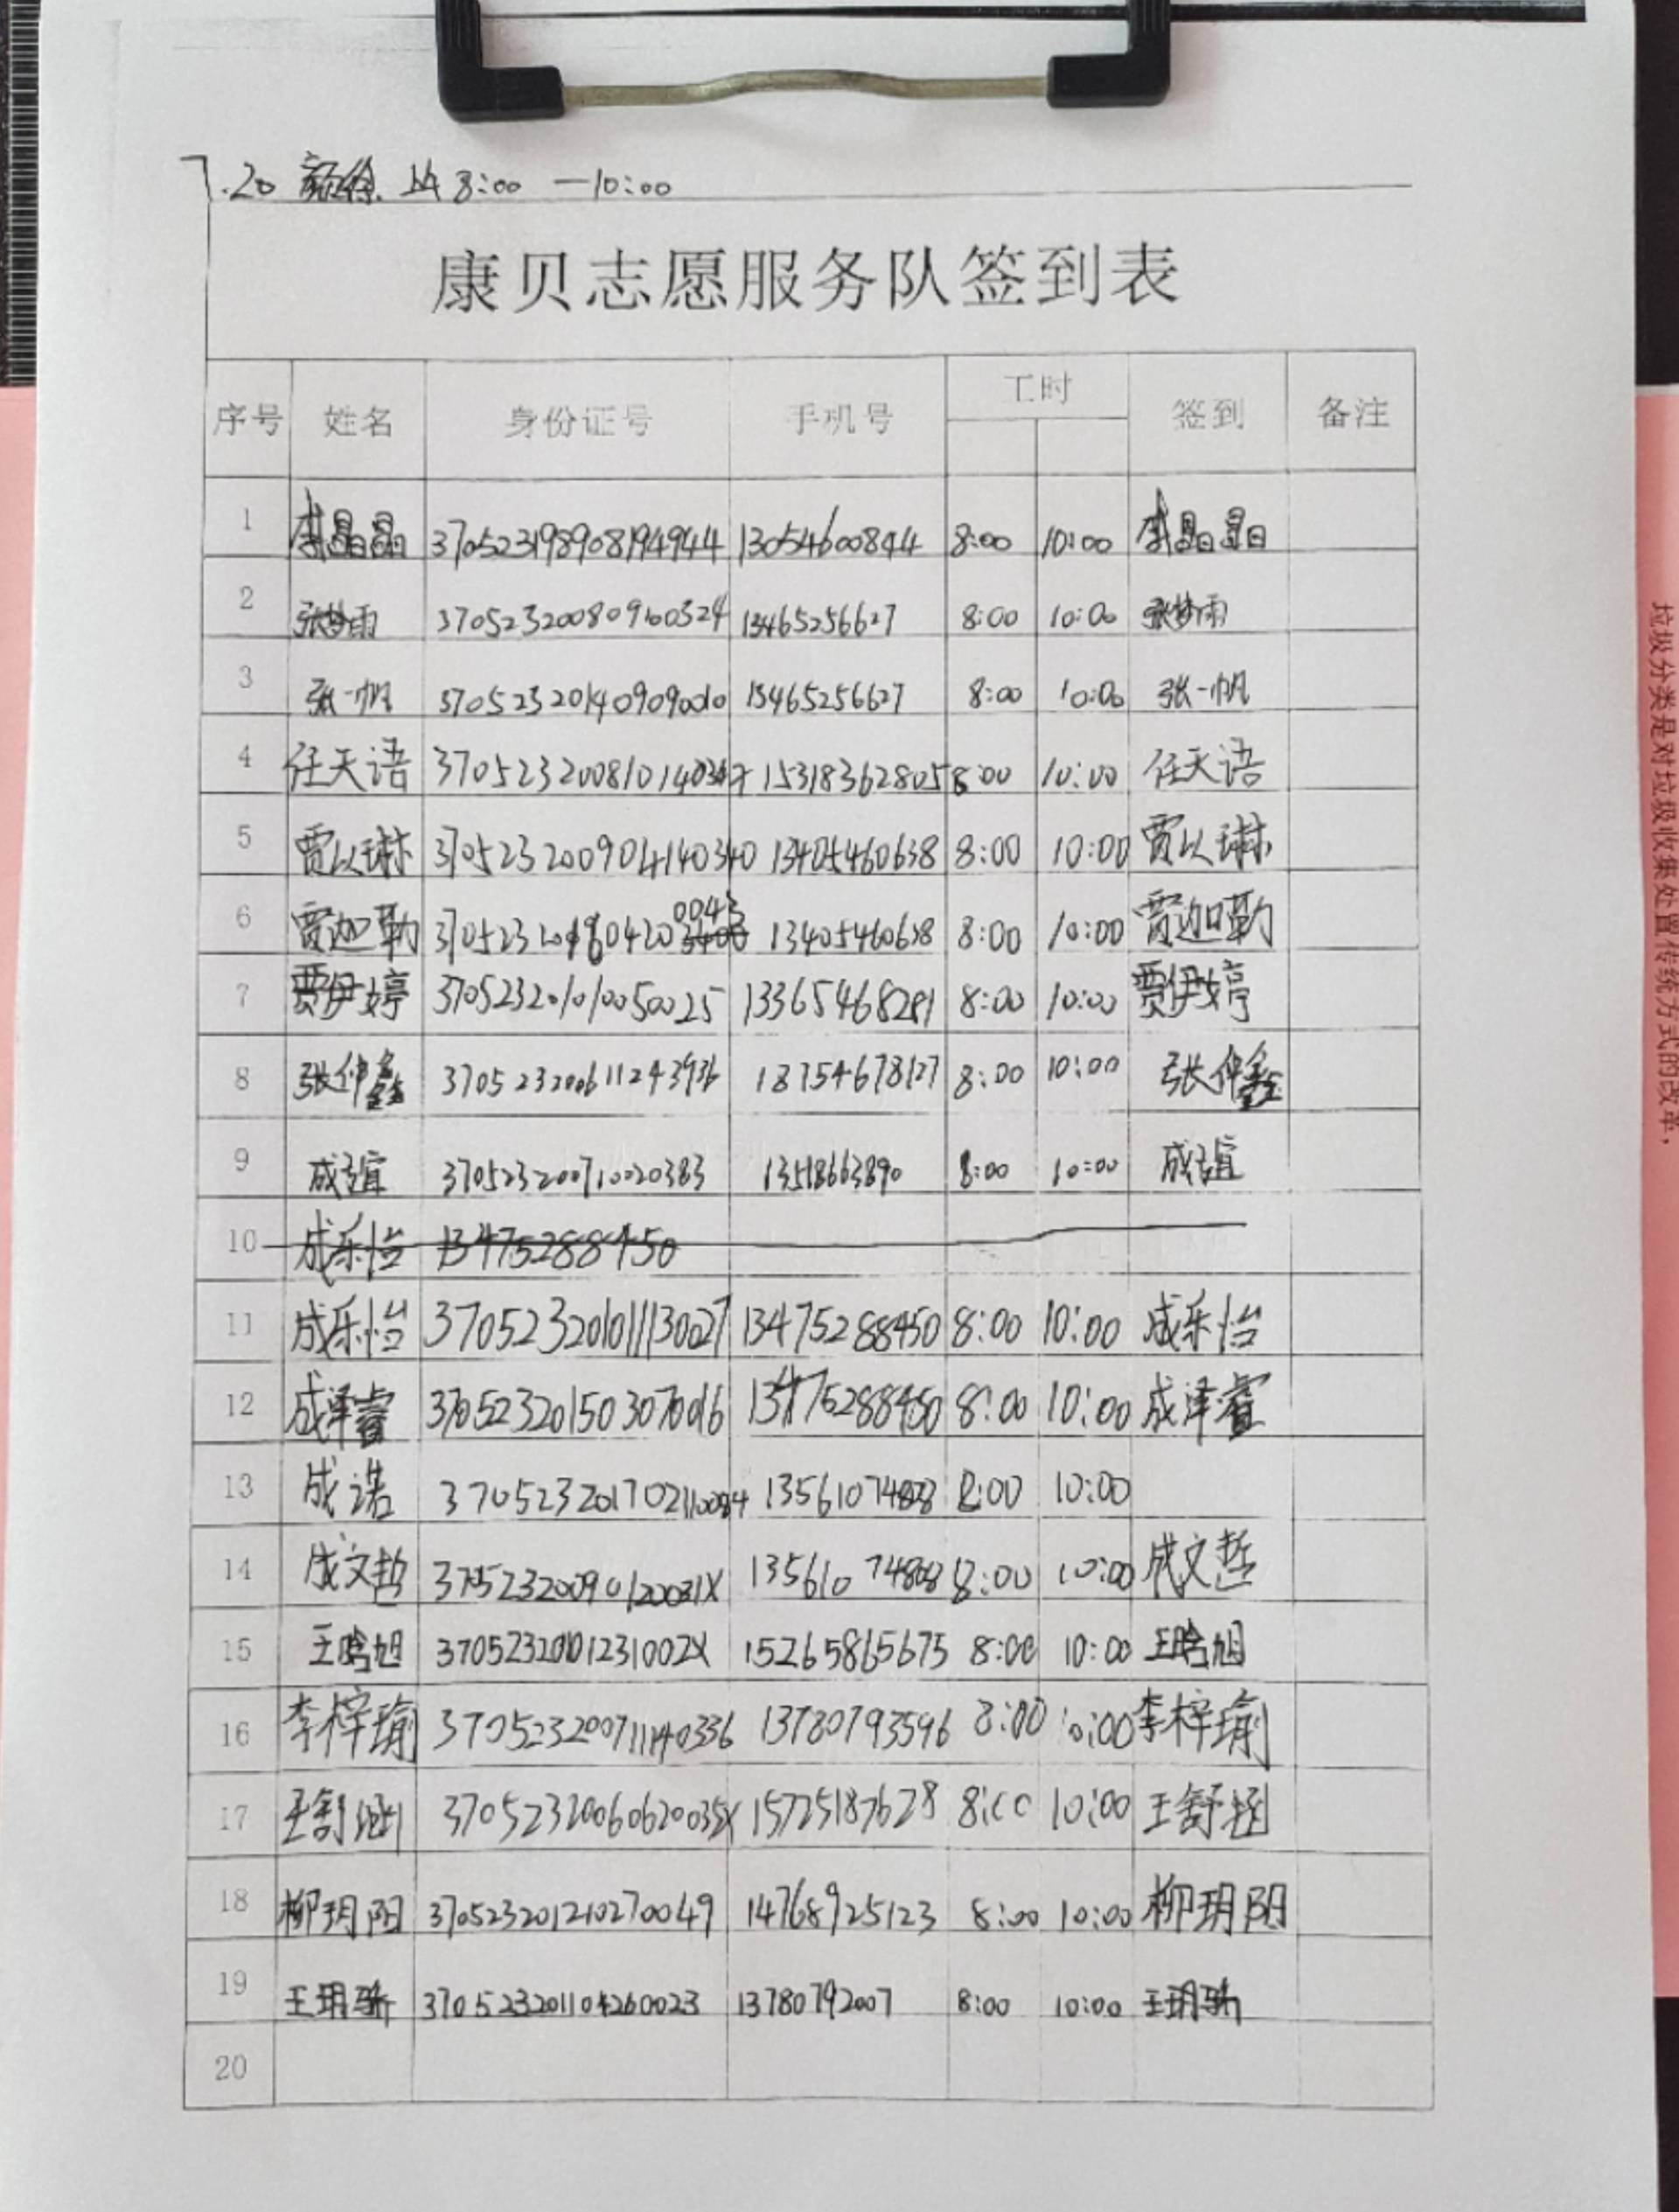 7.20 上午 8:00 —10:00
康贝志愿服务队签到表
序号 姓名 身份证号 手机号 工时 签到 备注
1 李晶晶 370523198908194944 13054600844 8:00 10:00 李晶晶
2 张梦雨 13465256627 8:00 10:00 张梦雨
3 张一帆 370523201409090010 13465256627 8:00 10:00 张一帆
4 任天语 15318362805 8:00 10:00 任天语
5 贾以琳 370523200904140340 13405460638 8:00 10:00 贾以琳
6 贾迦勒 13405460638 8:00 10:00 贾迦勒
7 贾伊婷 370523201010050025 13365468281 8:00 10:00 贾伊婷
8 张仲鑫 370523200611243936 18754678127 8:00 10:00 张仲鑫
9 成谊 370523200710020383 13518663890 8:00 10:00 成谊
10 成乐怡 13475288450
11 成乐怡 370523201011130027 13475288450 8:00 10:00 成乐怡
12 成泽睿 370523201503070016 13475288450 8:00 10:00 成泽睿
13 成诺 8:00 10:00
14 成文哲 37052320090120031X 13561074808 8:00 10:00 成文哲
15 王晗旭 37052320101231002X 15265865675 8:00 10:00 王晗旭
16 李梓瑜 370523200711140336 13780793596 8:00 10:00 李梓瑜
17 王舒涵 37052320060620035X 15725187628 8:00 10:00 王舒涵
18 柳玥阳 370523201210270049 14768925123 8:00 10:00 柳玥阳
19 王玥骄 370523201104260023 13780792007 8:00 10:00 王玥骄
20
垃圾分类是对垃圾收集处置传统方式的改革，